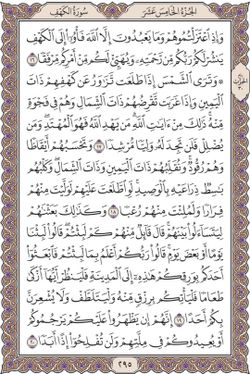 سُورَةُ الكَهۡفِ
الجُزۡءُ الخَامِسَ عَشَرَ
وَإِذِ ٱعۡتَزَلۡتُمُوهُمۡ وَمَا يَعۡبُدُونَ إِلَّا ٱللَّهَ فَأۡوُۥٓاْ إِلَى ٱلۡكَهۡفِ
يَنشُرۡ لَكُمۡ رَبُّكُم مِّن رَّحۡمَتِهِۦ وَيُهَيِّئۡ لَكُم مِّنۡ أَمۡرِكُم مِّرۡفَقٗا ١٦
۞ وَتَرَى ٱلشَّمۡسَ إِذَا طَلَعَت تَّزَٰوَرُ عَن كَهۡفِهِمۡ ذَاتَ
ٱلۡيَمِينِ وَإِذَا غَرَبَت تَّقۡرِضُهُمۡ ذَاتَ ٱلشِّمَالِ وَهُمۡ فِي فَجۡوَةٖ
مِّنۡهُۚ ذَٰلِكَ مِنۡ ءَايَٰتِ ٱللَّهِۗ مَن يَهۡدِ ٱللَّهُ فَهُوَ ٱلۡمُهۡتَدِۖ وَمَن
يُضۡلِلۡ فَلَن تَجِدَ لَهُۥ وَلِيّٗا مُّرۡشِدٗا ١٧ وَتَحۡسَبُهُمۡ أَيۡقَاظٗا
وَهُمۡ رُقُودٞۚ وَنُقَلِّبُهُمۡ ذَاتَ ٱلۡيَمِينِ وَذَاتَ ٱلشِّمَالِۖ وَكَلۡبُهُم
بَٰسِطٞ ذِرَاعَيۡهِ بِٱلۡوَصِيدِۚ لَوِ ٱطَّلَعۡتَ عَلَيۡهِمۡ لَوَلَّيۡتَ مِنۡهُمۡ
فِرَارٗا وَلَمُلِئۡتَ مِنۡهُمۡ رُعۡبٗا ١٨ وَكَذَٰلِكَ بَعَثۡنَٰهُمۡ
لِيَتَسَآءَلُواْ بَيۡنَهُمۡۚ قَالَ قَآئِلٞ مِّنۡهُمۡ كَمۡ لَبِثۡتُمۡۖ قَالُواْ لَبِثۡنَا
يَوۡمًا أَوۡ بَعۡضَ يَوۡمٖۚ قَالُواْ رَبُّكُمۡ أَعۡلَمُ بِمَا لَبِثۡتُمۡ فَٱبۡعَثُوٓاْ
أَحَدَكُم بِوَرِقِكُمۡ هَٰذِهِۦٓ إِلَى ٱلۡمَدِينَةِ فَلۡيَنظُرۡ أَيُّهَآ أَزۡكَىٰ
طَعَامٗا فَلۡيَأۡتِكُم بِرِزۡقٖ مِّنۡهُ وَلۡيَتَلَطَّفۡ وَلَا يُشۡعِرَنَّ
بِكُمۡ أَحَدًا ١٩ إِنَّهُمۡ إِن يَظۡهَرُواْ عَلَيۡكُمۡ يَرۡجُمُوكُمۡ
أَوۡ يُعِيدُوكُمۡ فِي مِلَّتِهِمۡ وَلَن تُفۡلِحُوٓاْ إِذًا أَبَدٗا ٢٠
٢٩٥